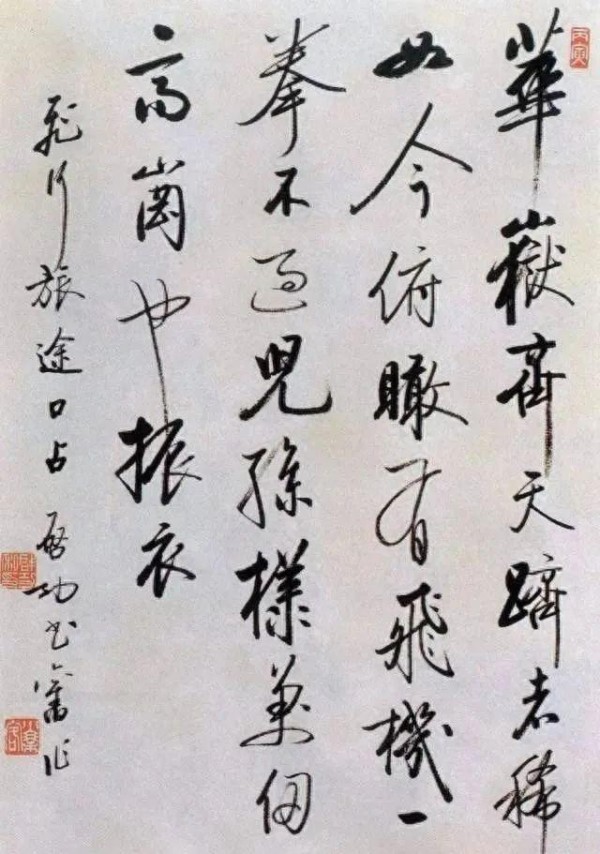 丙寅
華嶽齊天躋者稀
如今俯瞰有飛機一
拳不過兒孫樣萬仞
高崗也振衣
飛行旅途口占 啟功書舊作